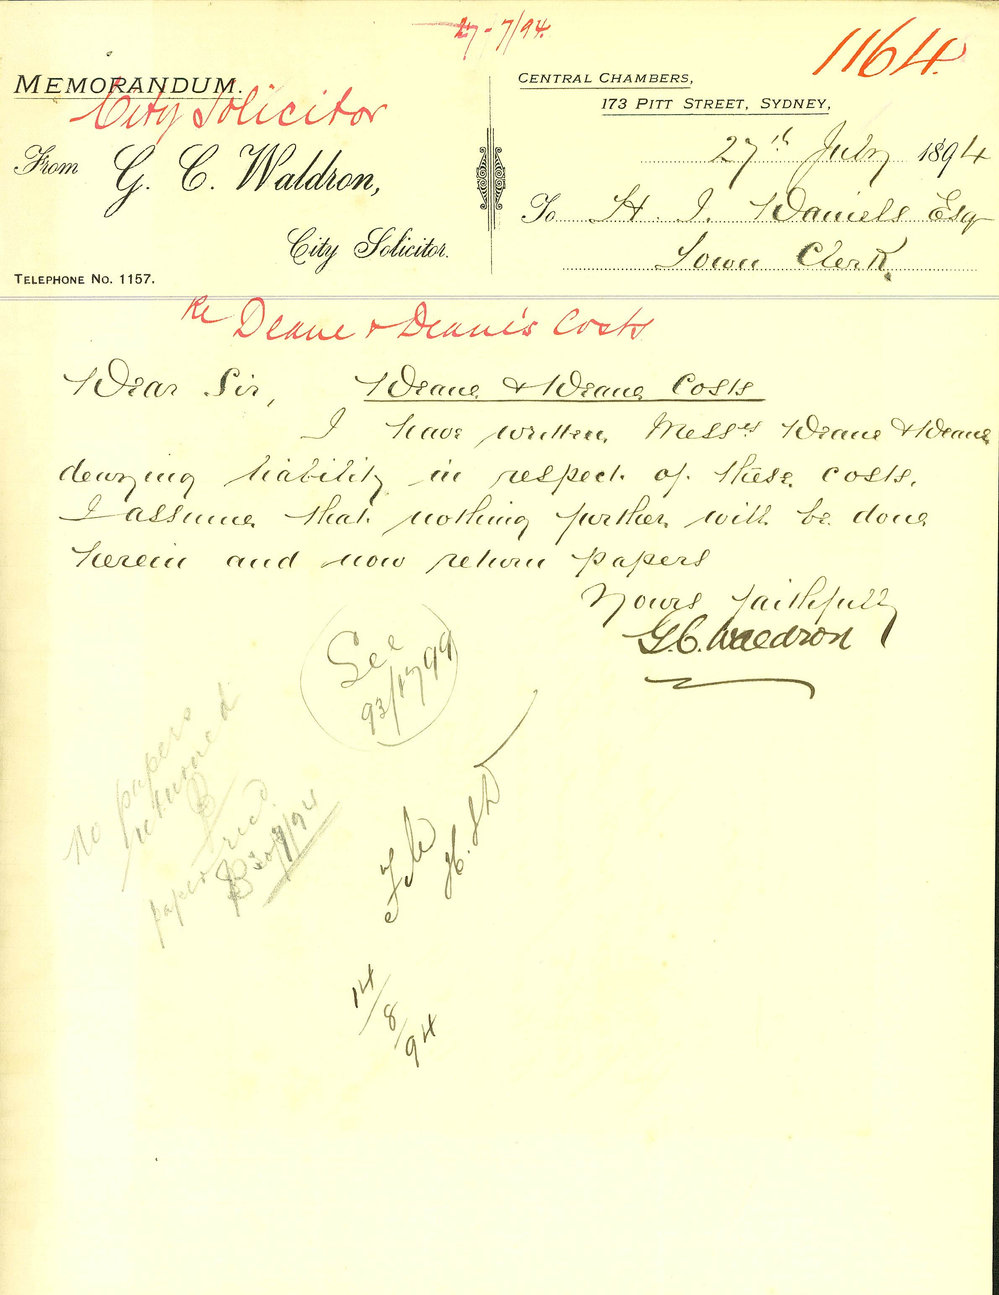 27-7/94.
1164.
MEMORANDUM.
City Solicitor
From G. C. Waldron,
City Solicitor.
TELEPHONE NO. 1157.
CENTRAL CHAMBERS,
173 PITT STREET, SYDNEY,
27th July 1894
To H. J. Daniels Esq
Town Clerk.
Re Deane & Deane's Costs
Dear Sir, Deane & Deane Costs
I have written Messrs Deane & Deane
denying liability in respect of these costs.
I assume that nothing further will be done
herein and now return papers
Yours faithfully
G.C. Waldron
See
93/1799
No papers
returned
paper
30/7/94
File
H.J.D
14/8/94